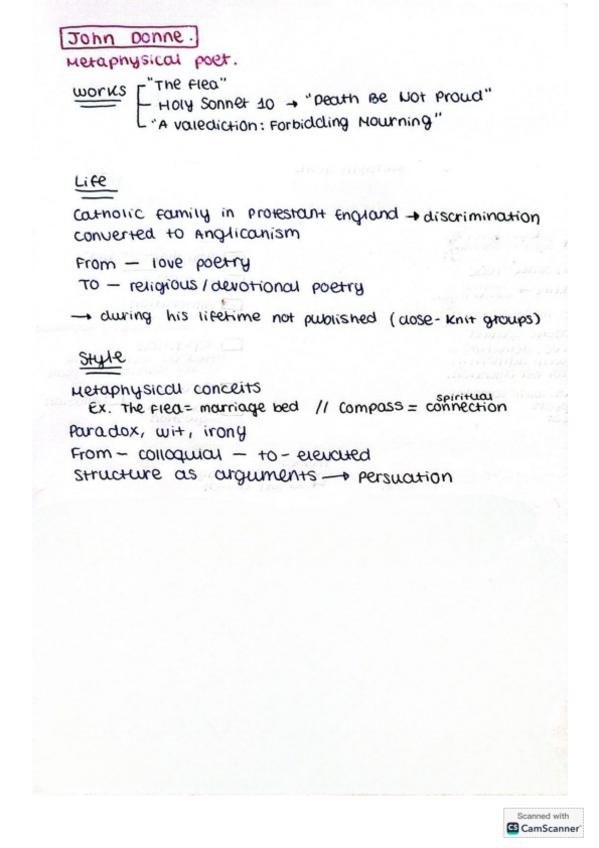 John Donne.
Metaphysical poet.
works
"The Flea"
Holy Sonnet 10 → "Death Be Not Proud"
"A Valediction: Forbidding Mourning"
Life
Catholic family in Protestant England → discrimination
converted to Anglicanism
From – love poetry
To – religious / devotional poetry
→ during his lifetime not published (close-knit groups)
Style
Metaphysical conceits
Ex. The Flea = marriage bed // compass = spiritual connection
Paradox, wit, irony
From – colloquial – to – elevated
Structure as arguments → persuation
Scanned with
CS CamScanner